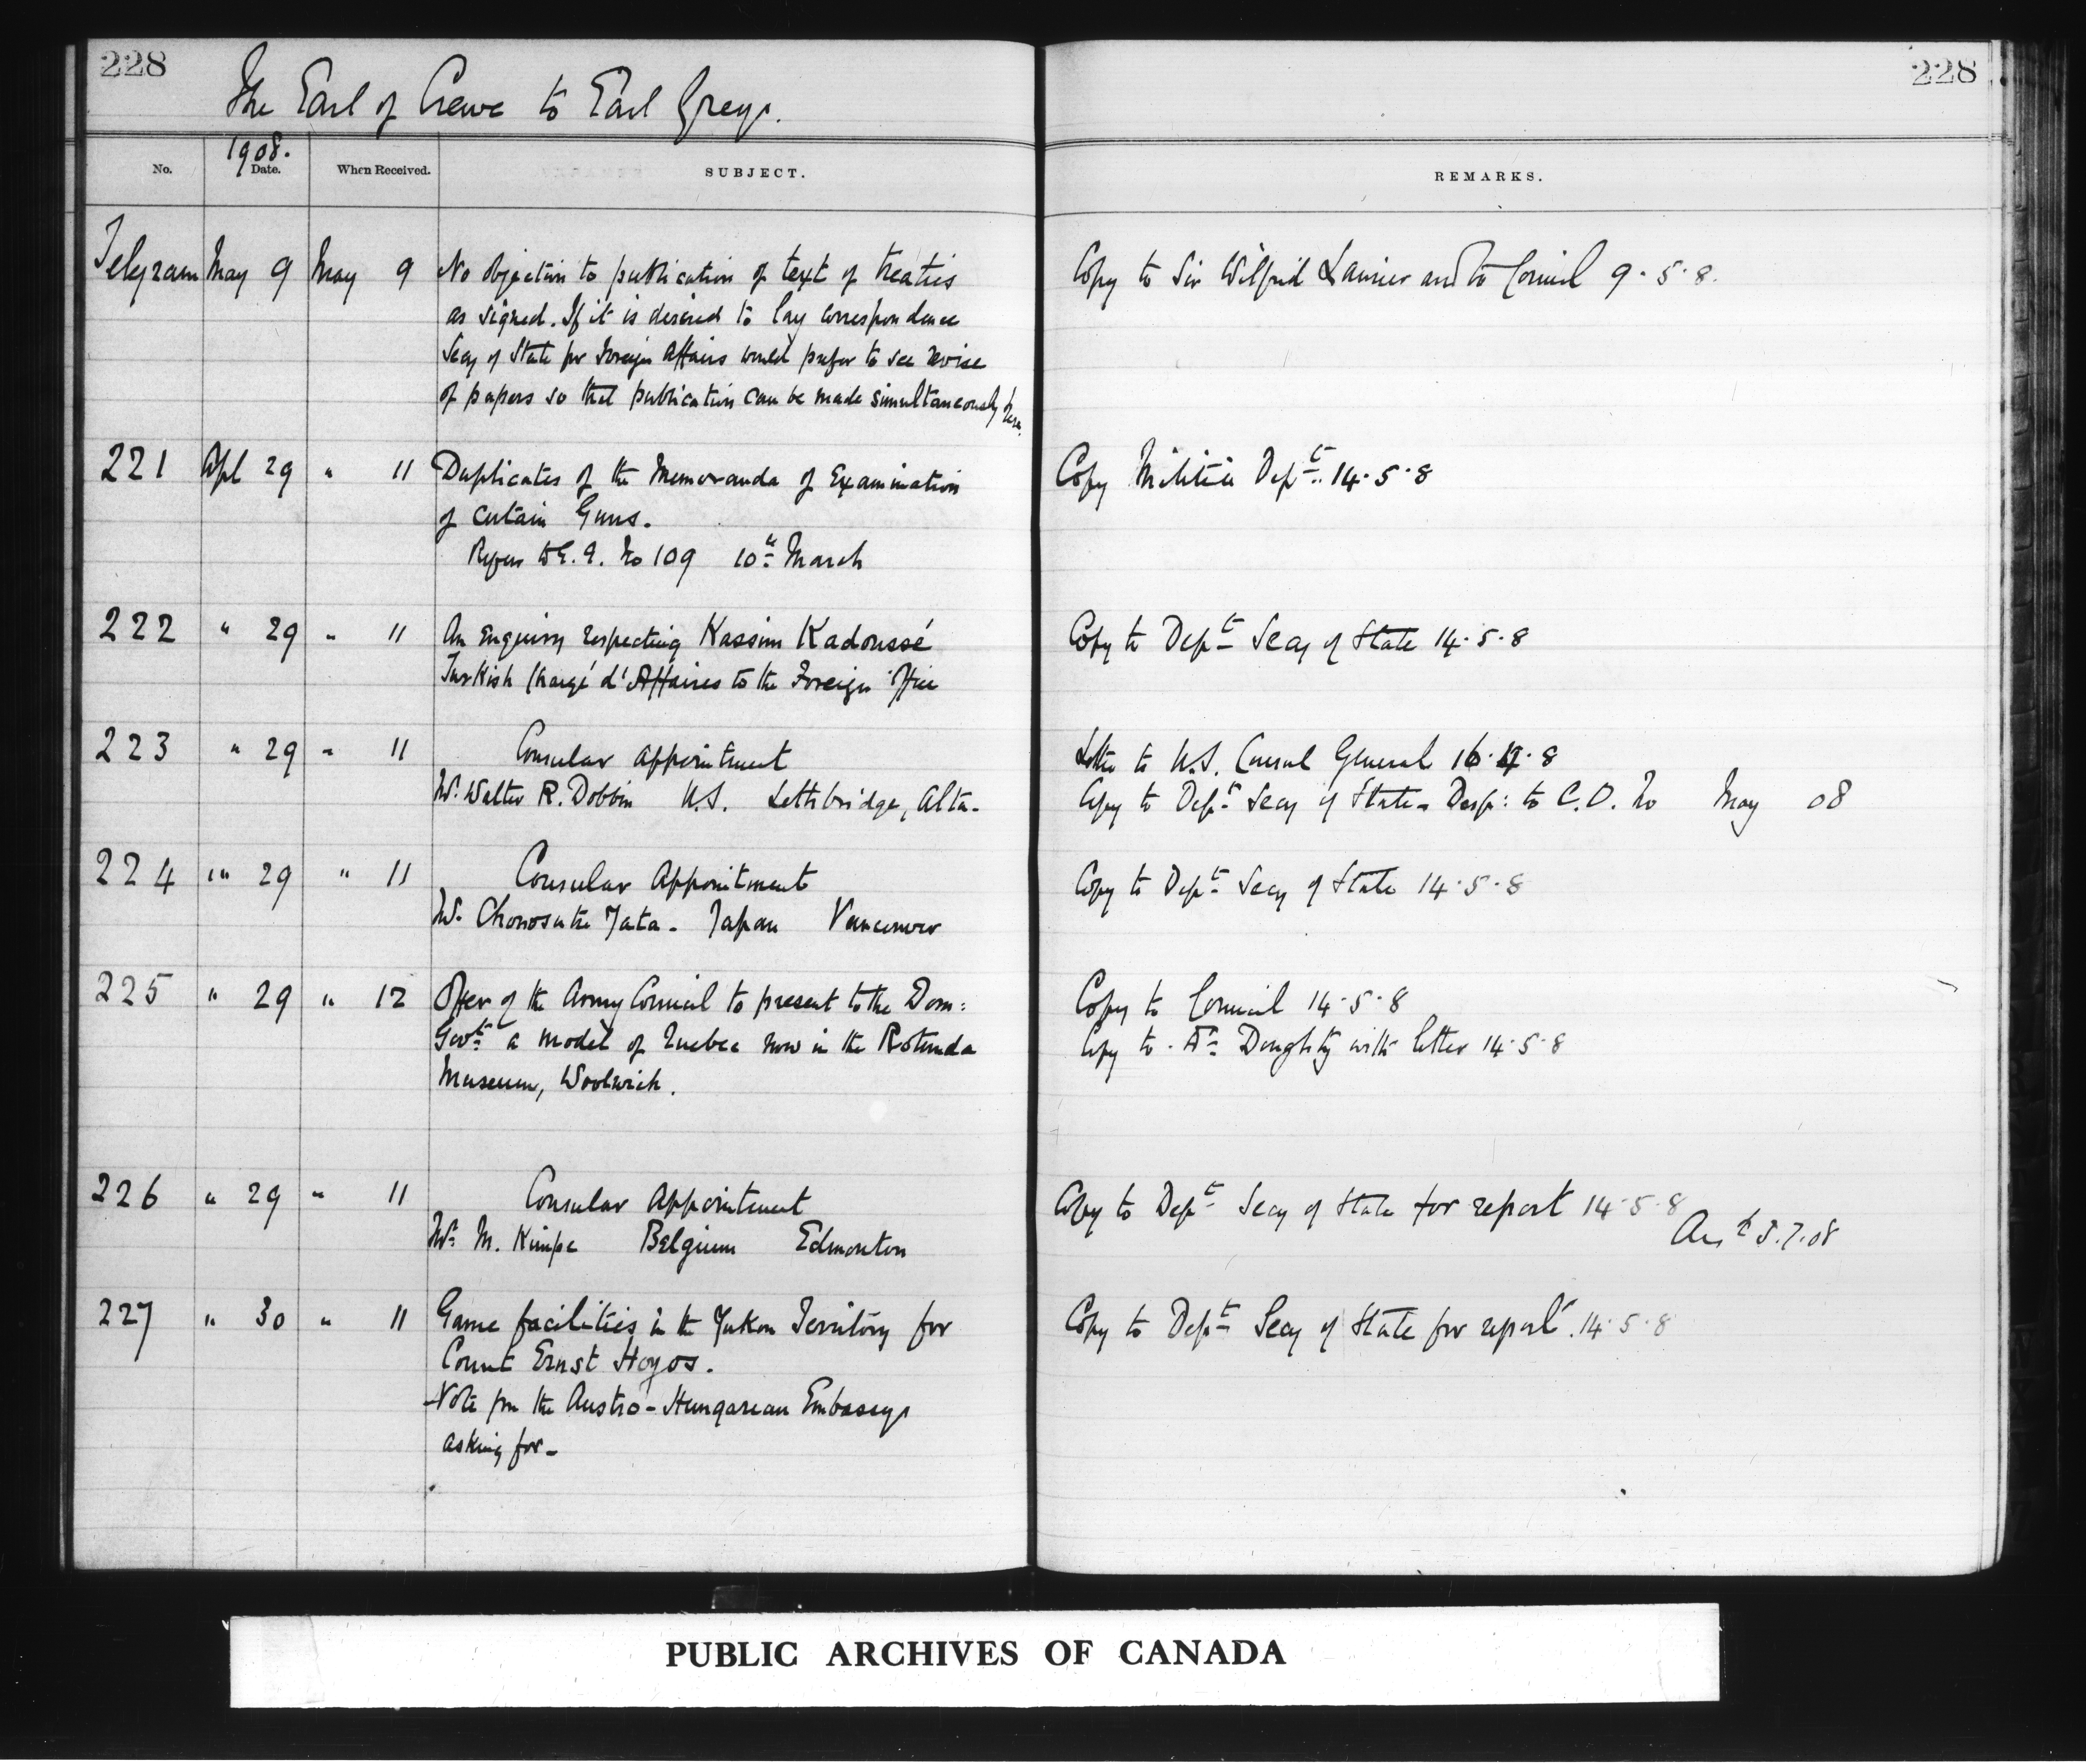 228
228
The Earl of Crewe to Earl Grey.
No. 1908. Date. When Received. SUBJECT. REMARKS.
Telegram May 9 May 9 No objection to publication of text of treaties Copy to Sir Wilfrid Laurier and to Council 9·5·8.
as signed. If it is desired to lay correspondence
Secy of State for Foreign Affairs would prefer to see revise
of papers so that publication can be made simultaneously here.
221 Apl 29 " 11 Duplicates of the Memoranda of Examination Copy Militia Dept. 14·5·8
of certain Guns.
Refers to G. G. No 109 10th March
222 " 29 " 11 An Enquiry respecting Kassim Kadoussé Copy to Dept Secy of State 14·5·8
Turkish Chargé d'Affaires to the Foreign Office
223 " 29 " 11 Consular appointment Letter to U.S. Consul General 16· ·8
Mr. Walter R. Dobbin U.S. Lethbridge, Alta. Copy to Dept Secy of State. Desp: to C.O. No May 08
224 " 29 " 11 Consular Appointment Copy to Dept Secy of State 14·5·8
Mr. Chonosuke Yata. Japan Vancouver
225 " 29 " 12 Offer of the Army Council to present to the Dom: Copy to Council 14·5·8
Govt. a model of Quebec now in the Rotunda Copy to Dr Doughty with letter 14·5·8
Museum, Woolwich.
226 " 29 " 11 Consular Appointment Copy to Dept Secy of State for report 14·5·8
Mr. M. Kimpe Belgium Edmonton Ansd 5.7.08
227 " 30 " 11 Game facilities in the Yukon Territory for Copy to Dept Secy of State for report. 14·5·8
Count Ernst Hoyos.
Note fm the Austro-Hungarian Embassy
asking for-
PUBLIC ARCHIVES OF CANADA